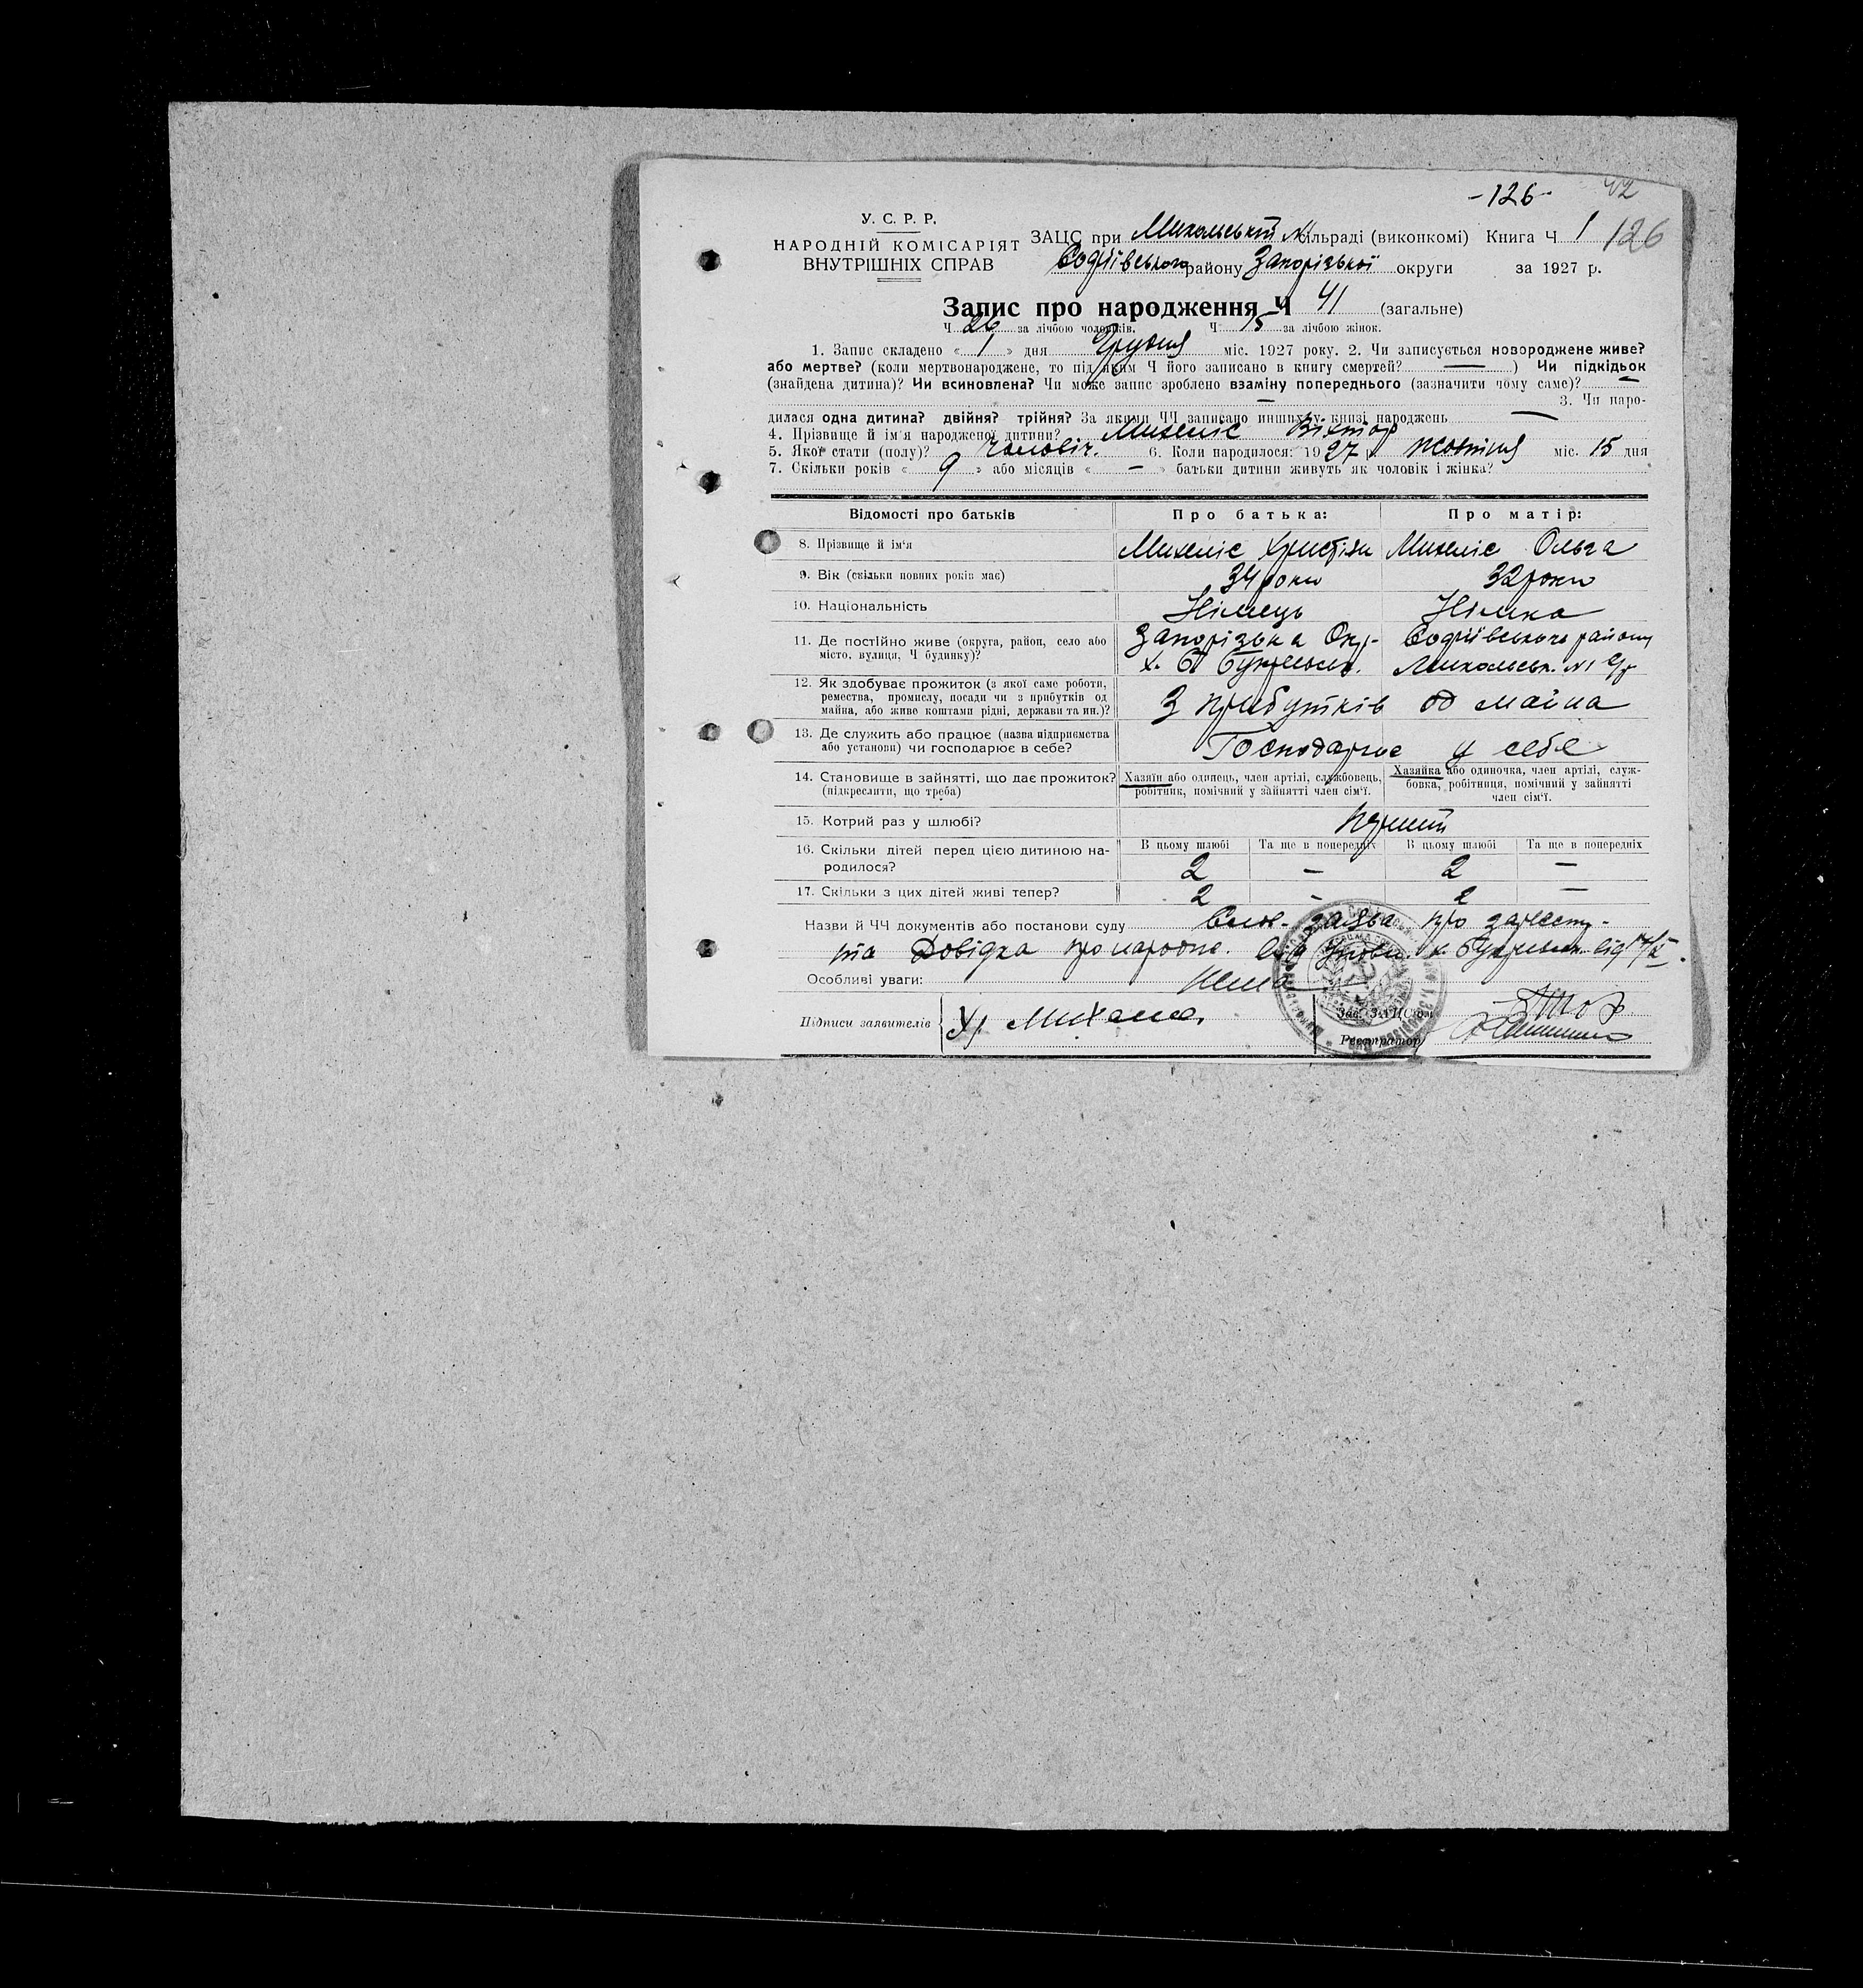 -126-
42
126
У. С. Р. Р.
НАРОДНІЙ КОМІСАРІЯТ
ВНУТРІШНІХ СПРАВ
ЗАЦС при Микольській №1 сільраді (виконкомі) Книга Ч 1
Софіївського району Запорізької округи за 1927 р.
Запис про народження Ч 41 (загальне)
Ч 26 за лічбою чоловіків. Ч 15 за лічбою жінок.
1. Запис складено « 1 » дня Грудня міс. 1927 року. 2. Чи записується новороджене живе?
або мертве? (коли мертвонароджене, то під яким Ч його записано в книгу смертей? — ) Чи підкідьок
(знайдена дитина)? Чи всиновлена? Чи може запис зроблено взаміну попереднього (зазначити чому саме)? —
— 3. Чи наро-
дилася одна дитина? двійня? трійня? За якими ЧЧ записано инших у книзі народжень —
4. Прізвище й ім'я народженої дитини? Михеліс Віктор
5. Якої стати (полу)? чоловіч. 6. Коли народилося: 1927 р. жовтня міс. 15 дня
7. Скільки років « 9 » або місяців « — » батьки дитини живуть як чоловік і жінка?
Відомості про батьків Про батька: Про матір:
8. Прізвище й ім'я Михеліс Христіян Михеліс Ольга
9. Вік (скільки повних років має) 34 роки 32 роки
10. Національність Німець Німка
11. Де постійно живе (округа, район, село або
місто, вулиця, Ч будинку)?
Запорізька Окр. Софіївського району
х. Микольськ. №1
12. Як здобуває прожиток (з якої саме роботи,
ремества, промислу, посади чи з прибутків од
майна, або живе коштами рідні, держави та ин.)?
З прибутків од майна
13. Де служить або працює (назва підприємства
або установи) чи господарює в себе?
Господарює у себе
14. Становище в зайнятті, що дає прожиток?
(підкреслити, що треба)
Хазяїн або одинець, член артілі, службовець,
робітник, помічний у зайнятті член сім'ї.
Хазяйка або одиночка, член артілі, служ-
бовка, робітниця, помічний у зайнятті
член сім'ї.
15. Котрий раз у шлюбі? перший
16. Скільки дітей перед цією дитиною на-
родилося?
В цьому шлюбі Та ще в попередніх В цьому шлюбі Та ще в попередніх
2 — 2 —
17. Скільки з цих дітей живі тепер? 2 — 2 —
Назви й ЧЧ документів або постанови суду заява про
та Довідка про народж.
Особливі уваги: Нема
Підписи заявителів Х.
Зав. ЗАЦСом
Реєстратор